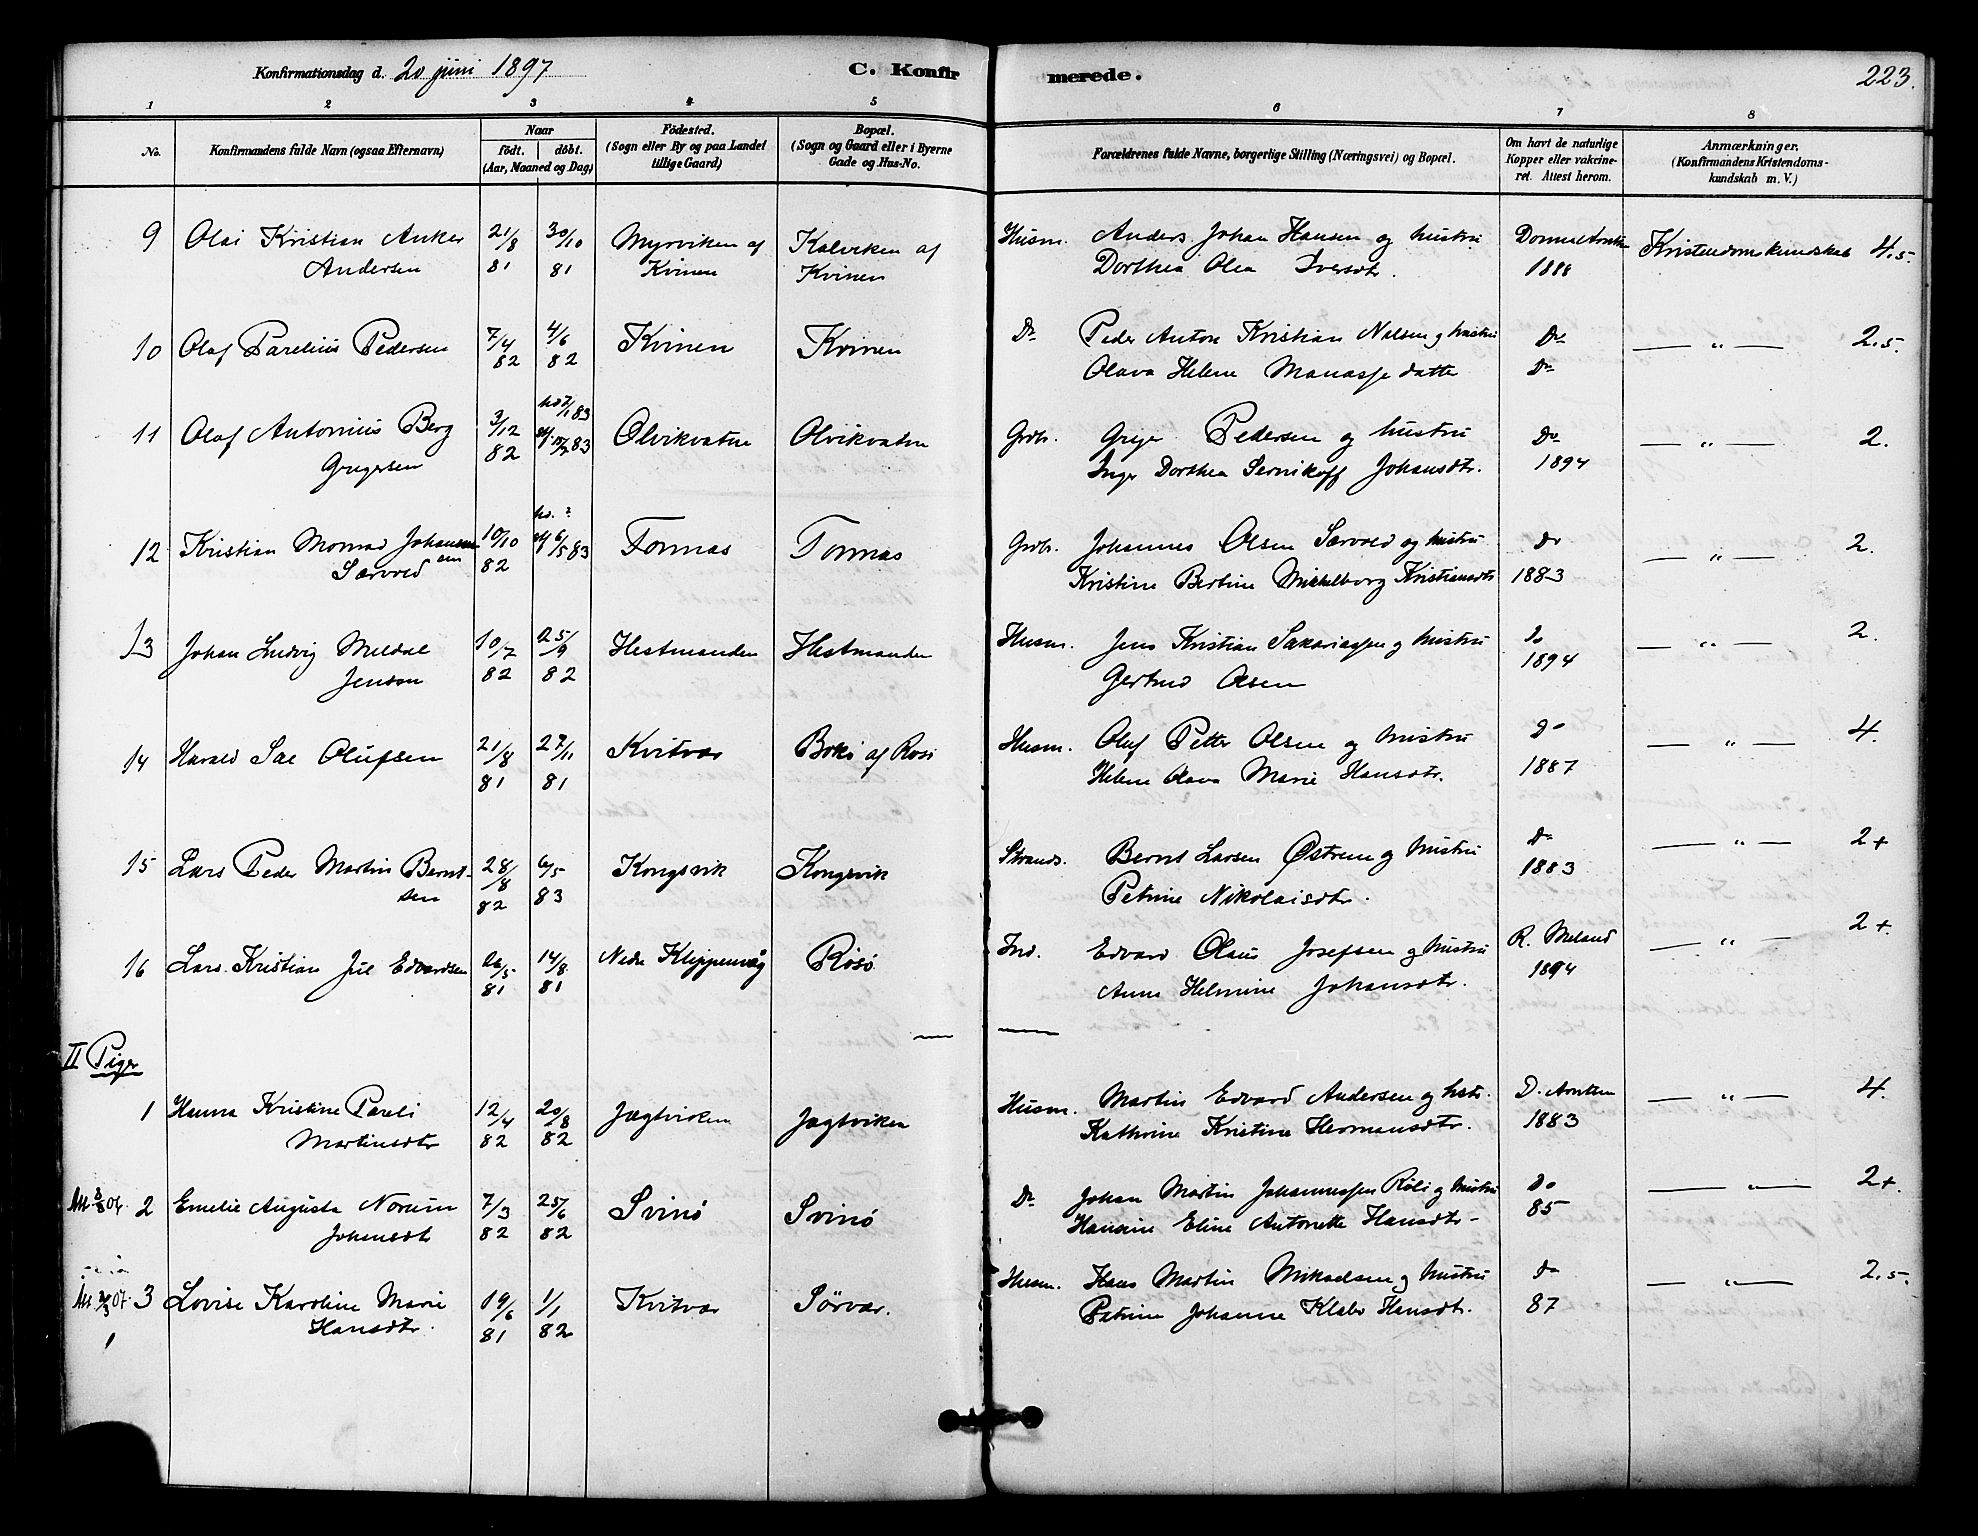 Konfirmationsdag d. 20 juni 1897
C. Konfirmerede.
223.
1 2 3 4 5 6 7 8
No.
Konfirmandens fulde Navn (ogsaa Efternavn)
Naar
födt. döbt.
(Aar, Maaned og Dag)
Födested.
(Sogn eller By og paa Landet
tillige Gaard)
Bopæl.
(Sogn og Gaard eller i Byerne
Gade og Hus-No.
Forældrenes fulde Navne, borgerlige Stilling (Næringsvei) og Bopæl.
Om havt de naturlige
Kopper eller vakcine-
ret. Attest herom.
Anmærkninger.
(Konfirmandens Kristendoms-
kundskab m. V.)
9 Olai Kristian Anker 21/8 30/10 Myrviken af Kalviken af Husm. Anders Johan Hansen og hustru Kristendomskundskab 4.5.
Andersen 81 81 Kvinen Kvinen Dorthea Olea Iversdtr. 1888
10 Olaf Parelius Pedersen 7/4 4/6 Kvinen Kvinen Do Peder Anton Kristian Nilsen og hustru Do — " — 2.5.
82 82 Olava Helene Manassedatter Do
11 Olaf Antonius Berg 3/12 7/1 83 Olvikvatne Olvikvatn Grdb. Griger Pedersen og hustru Do — " — 2.
Grigersen 82 83 Inger Dorthea Johansdtr. 1894
12 Kristian Monrad Johansen 10/10 6/5 83 Tonnas Tonnas Grdb. Johannes Olsen Sørvold og hustru Do — " — 2.
Sørvold 82 Kristine Bertine Mickelborg Kristiansdtr 1883
13 Johan Ludvig Meldal 10/7 25/9 Hestmanden Hestmanden Husm. Jens Kristian Sakariassen og hustru Do — " — 2.
Jensen 82 82 Gertrud Olsen 1894
14 Harald Olufsen 21/8 27/11 Kvitvar af Rösö Husm. Oluf Petter Olsen og hustru Do — " — 4.
81 81 Helene Olava Marie Hansdtr. 1887
15 Lars Peder Martin Bernt- 28/8 6/5 Kongsvik Kongsvik Strands. Bernt Larsen Østrem og hustru Do — " — 2+
sen 82 83 Petrine Nikolaisdtr. 1883
16 Lars Kristian Jul Edvardsen 26/5 14/8 Nedre Klippenvåg Rösö Ind. Edvard Olaus Josefsen og hustru R. Meland — " — 2+.
81 81 Anne Helmine Johansdtr. 1894
II Piger
1 Hanna Kristine Pareli 12/4 20/8 Jægtviken Jægtviken Husm. Martin Edvard Andersen og hstr. — " — 4.
Martinsdtr 82 82 Kathrine Kristine Hermansdtr. 1883
2 Emelie Augusta Norum 7/3 25/6 Svinö Svinö Do Johan Martin Johannessen Röli og hustru Do — " — 2+.
Johansdtr 82 82 Hansine Eline Antonette Hansdtr- 85
3 Lovise Karoline Marie 19/6 1/1 Kvitvar Sörvær. Husm. Hans Martin Mikaelsen og hustru Do — " — 2.5.
Hansdtr. 81 82 Petrine Johanne Klabo Hansdtr. 87